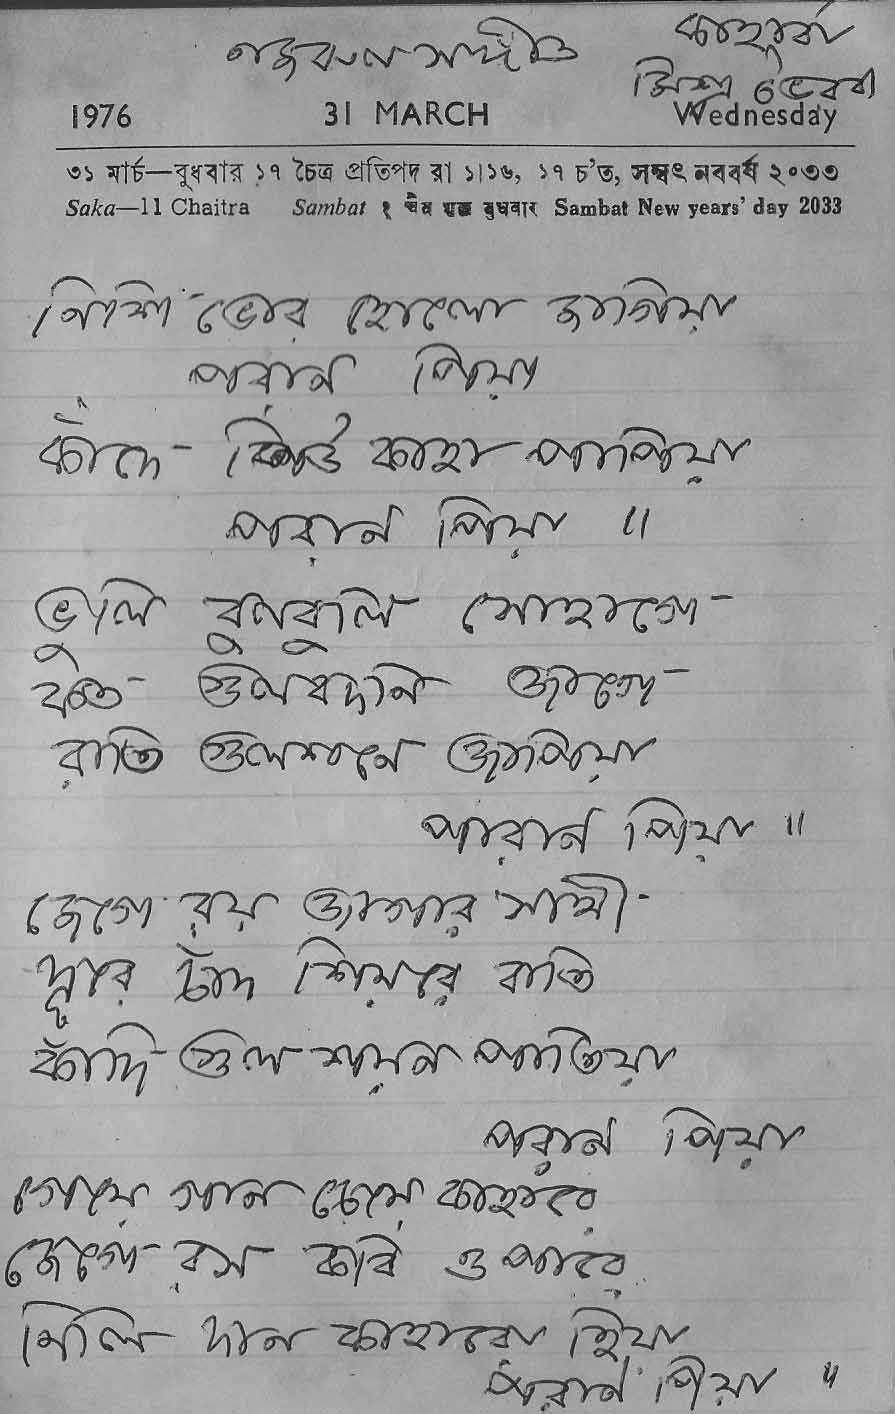 নজরুল সঙ্গীত
কাহার্বা
মিশ্র ভৈরবী
1976 31 MARCH Wednesday
৩১ মার্চ—বুধবার ১৭ চৈত্র প্রতিপদ রা ১।১৬, ১৭ চ'ত, সম্বৎ নববর্ষ ২০৩৩
Saka—11 Chaitra Sambat १ चैत्र शुक्ल बुधवार Sambat New years' day 2033
নিশি ভোর হোলো জাগিয়া
পরান পিয়া
কাঁদে পিউ কাহা পাপিয়া
পরান পিয়া ॥
ভুলি বুলবুলি সোহাগে
কত গুলবদনি জাগে
রাতি গুলশানে জাপিয়া
পরান পিয়া ॥
জেগে রয় জাগার সাথী
দূরে চাঁদ শিয়রে বাতি
কাঁদি গুল শয়ন পাতিয়া
পরান পিয়া
গেয়ে গান চেয়ে কাহারে
জেগে রস কবি ওপারে
দিলি দান কাহারে হিয়া
পরান পিয়া ॥